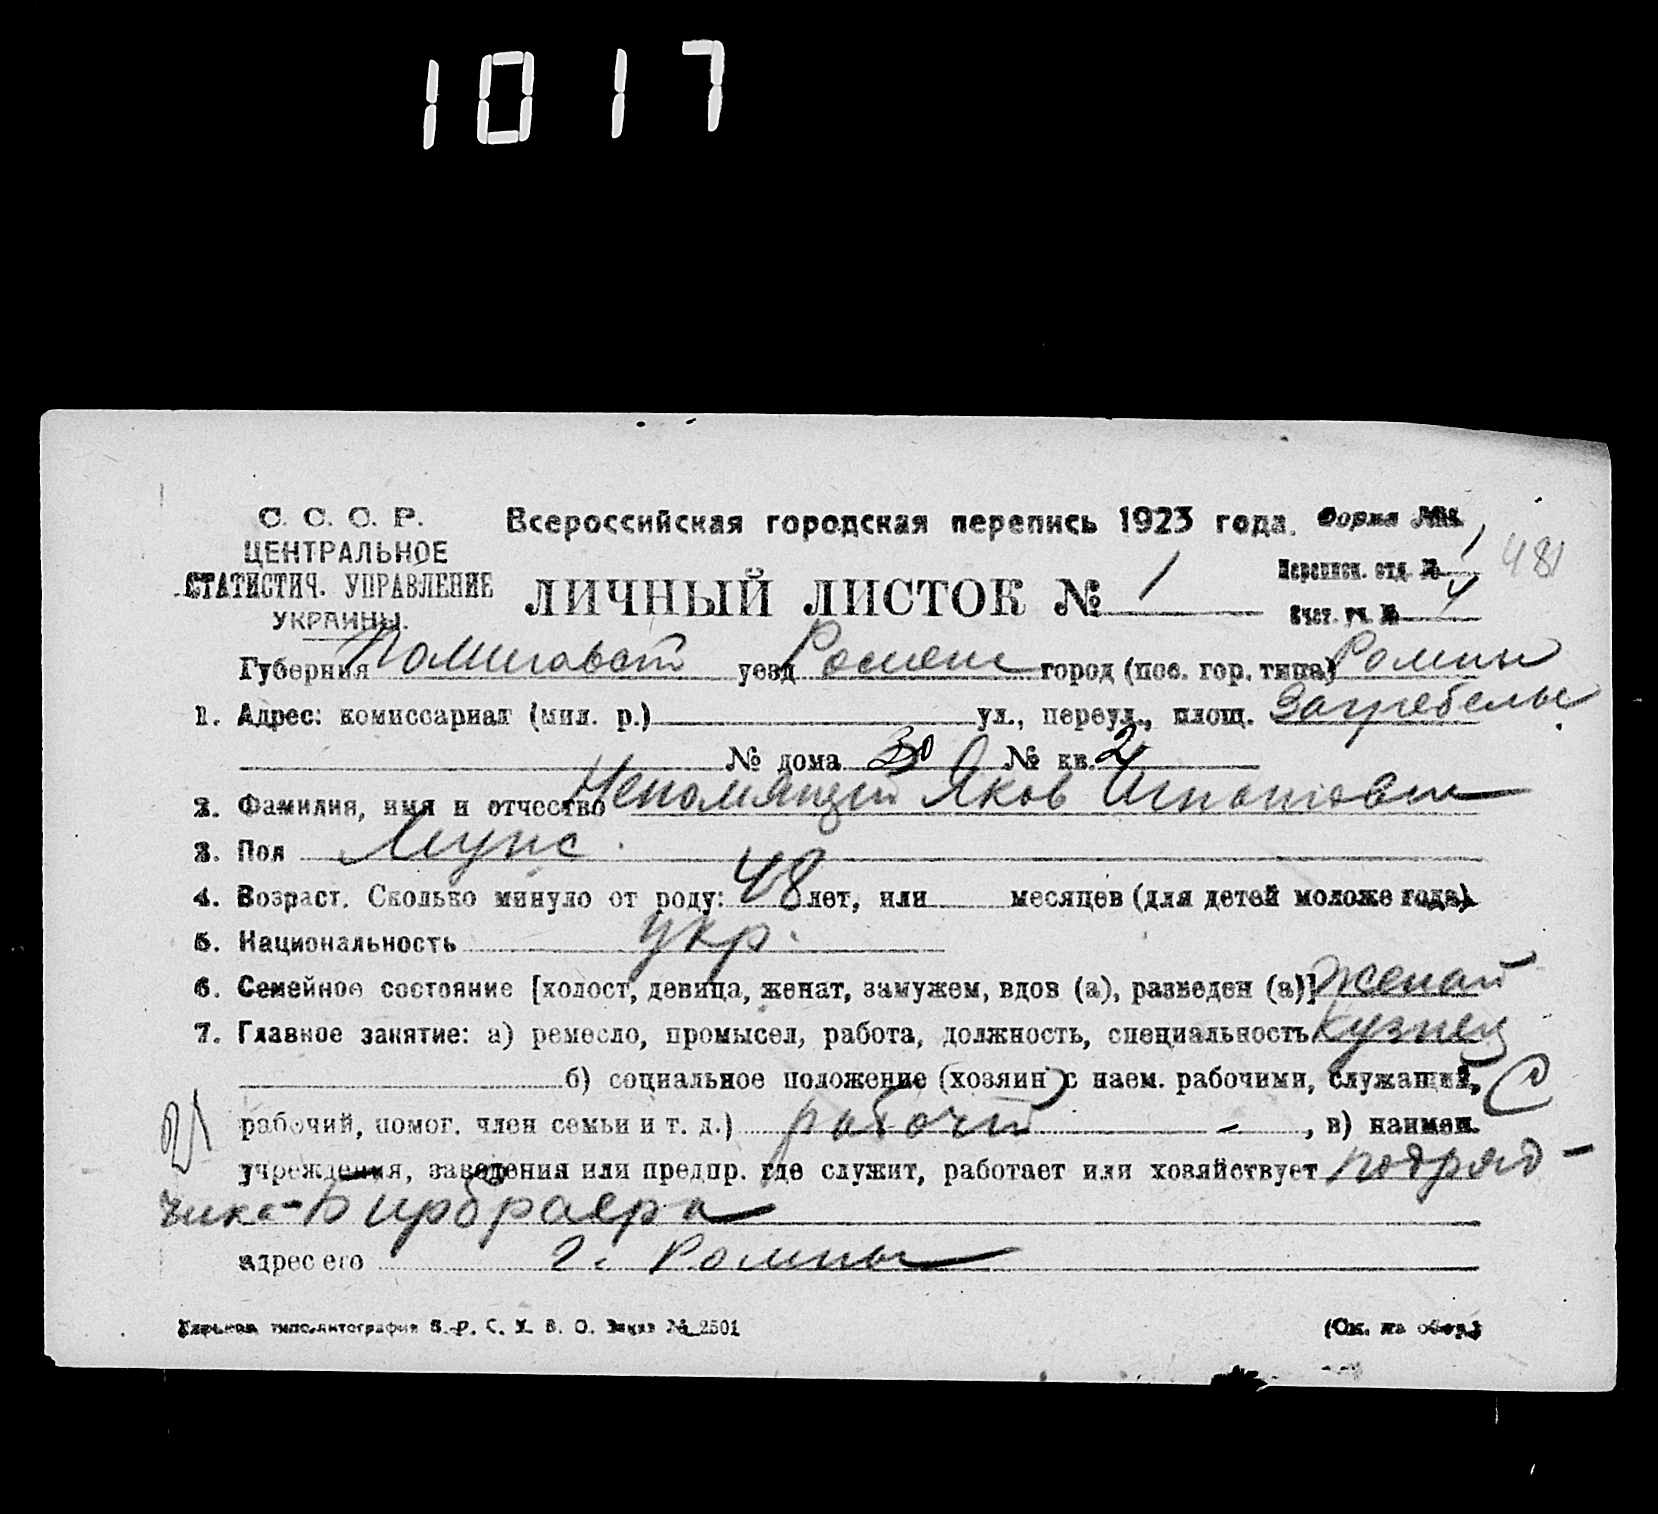 1017
С. С. С. Р.
ЦЕНТРАЛЬНОЕ
СТАТИСТИЧ. УПРАВЛЕНИЕ
УКРАИНЫ.
Всероссийская городская перепись 1923 года. Форма №1.
ЛИЧНЫЙ ЛИСТОК № 1
Переписн. отд. № 1
481
Счет. уч. № 4
Губерния уезд Ромен город (пос. гор. типа) Ромны
1. Адрес: комиссариат (мил. р.) ул., переул., площ. Загребелье
№ дома 30 № кв. 2
2. Фамилия, имя и отчество Непомящий Яков
3. Пол Мужс.
4. Возраст. Сколько минуло от роду: 48 лет, или месяцев (для детей моложе года).
5. Национальность укр.
6. Семейное состояние [холост, девица, женат, замужем, вдов (а), разведен (а)] женат
7. Главное занятие: а) ремесло, промысел, работа, должность, специальность кузнец
б) социальное положение (хозяин с наем. рабочими, служащий,
рабочий, помог. член семьи и т. д.) рабочий - , в) наимен.
учреждения, заведения или предпр. где служит, работает или хозяйствует подряд-
чика-Бирбраера
адрес его г. Ромны
Харьков, типо-литография Заказ № 2501
(См. на обор.)